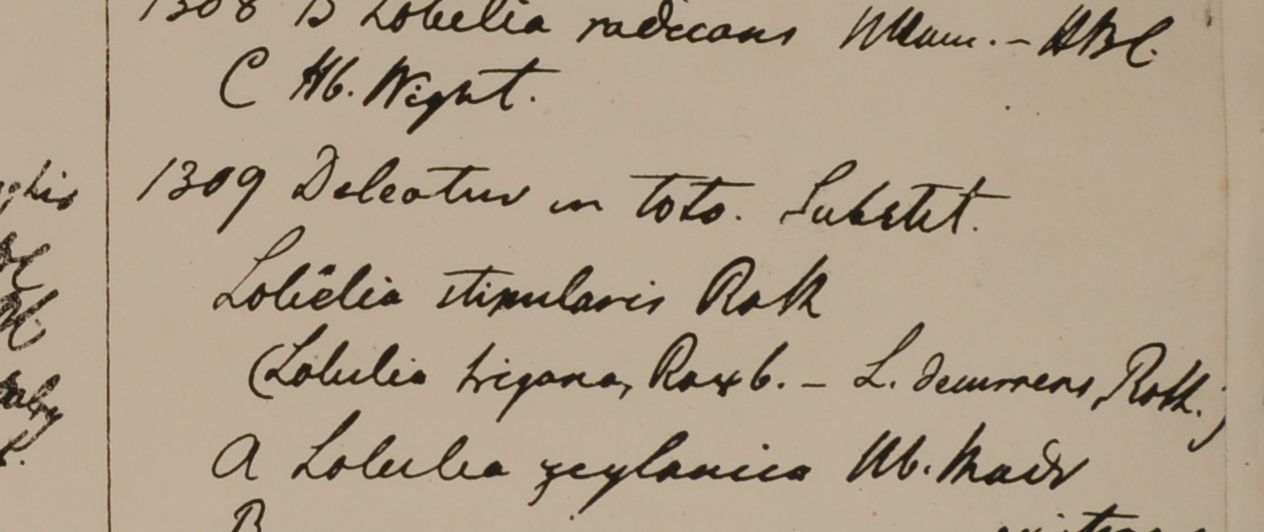 1308 B Lobelia radicans Wall. - HBC.
C Hb. Wight.
1309 Deleatur in toto. Substit.
Lobelia stipularis Roth
(Lobelia trigona, Roxb. - L. decurrens, Roth.)
A Lobelia zeylanica Hb. Madr
B